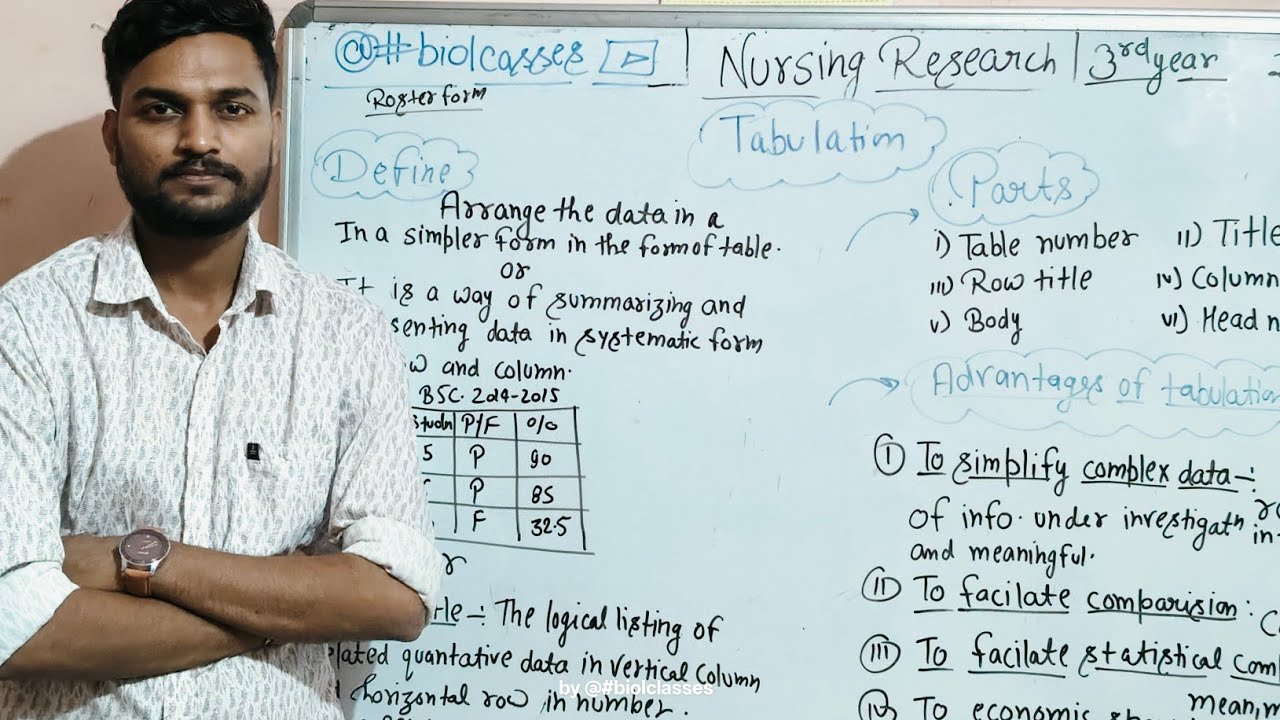 @#biolcasses
Nursing Research
3rd year
Roster form
Tabulation
Define
Arrange the data in a
In a simpler form in the form of table.
or
It is a way of summarizing and
senting data in systematic form
and column.
BSC. 2014-2015
P/F %
5 P 90
P 85
F 32.5
or
The logical listing of
quantative data in vertical column
horizontal row in number.
Parts
i) Table number ii) Title
iii) Row title iv) Column
v) Body vi) Head
Advantages of tabulation
I To simplify complex data-:
of info. under investigatn
and meaningful.
II To facilate comparision:
III To facilate statistical
mean,
IV To economic
by @#biolclasses